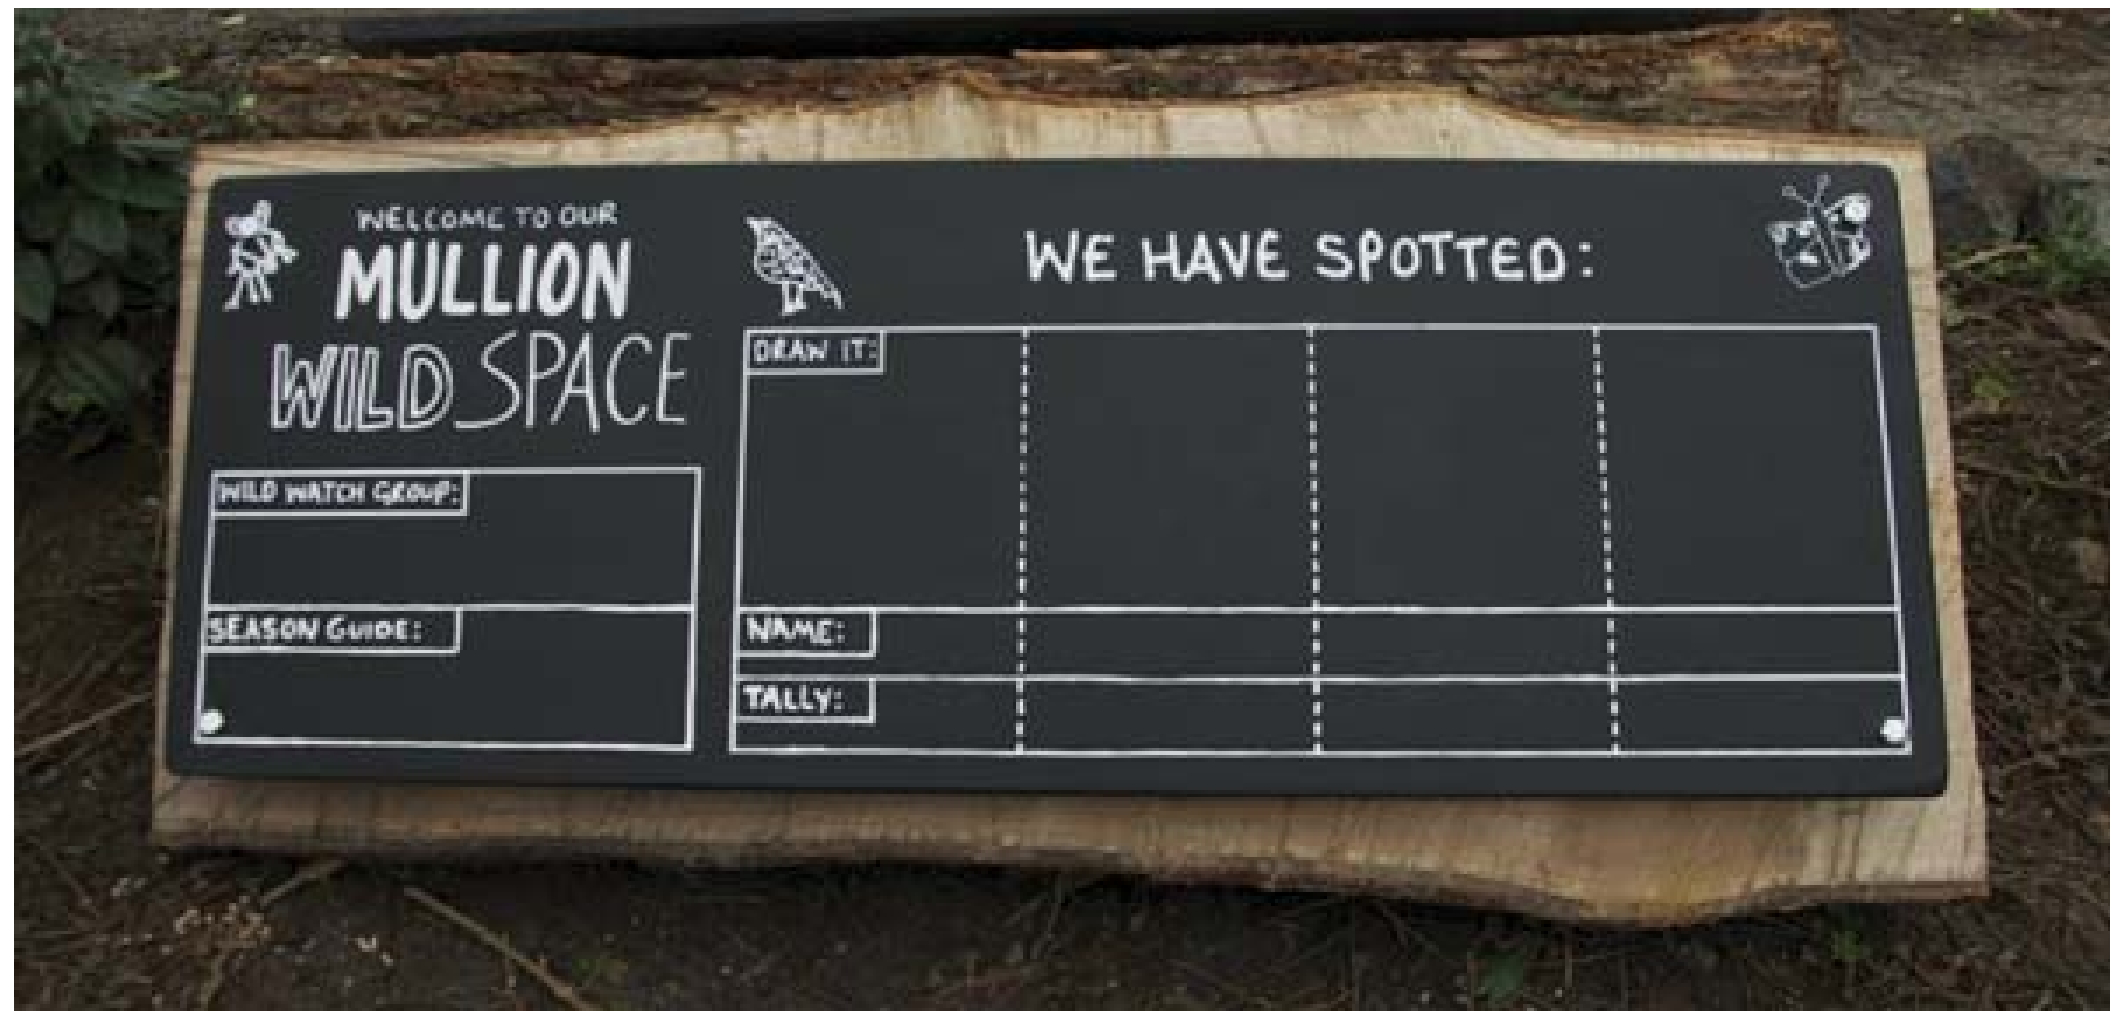 WELCOME TO OUR
MULLION
WILD SPACE
WILD WATCH GROUP:
SEASON GUIDE:
WE HAVE SPOTTED:
DRAW IT:
NAME:
TALLY: